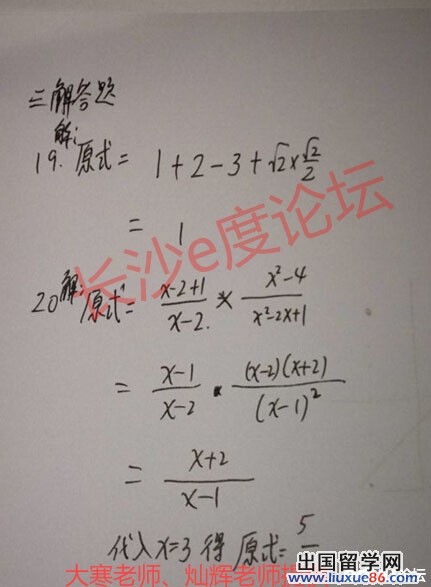 三解答题
解:
19. 原式= 1+2-3+√2×√2/2
= 1
20 解 原式= (x-2+1)/(x-2) × (x²-4)/(x²-2x+1)
= (x-1)/(x-2) · ((x-2)(x+2))/(x-1)²
= (x+2)/(x-1)
代入x=3得 原式= 5
长沙e度论坛
大寒老师、灿辉老师
出国留学网
www.liuxue86.com